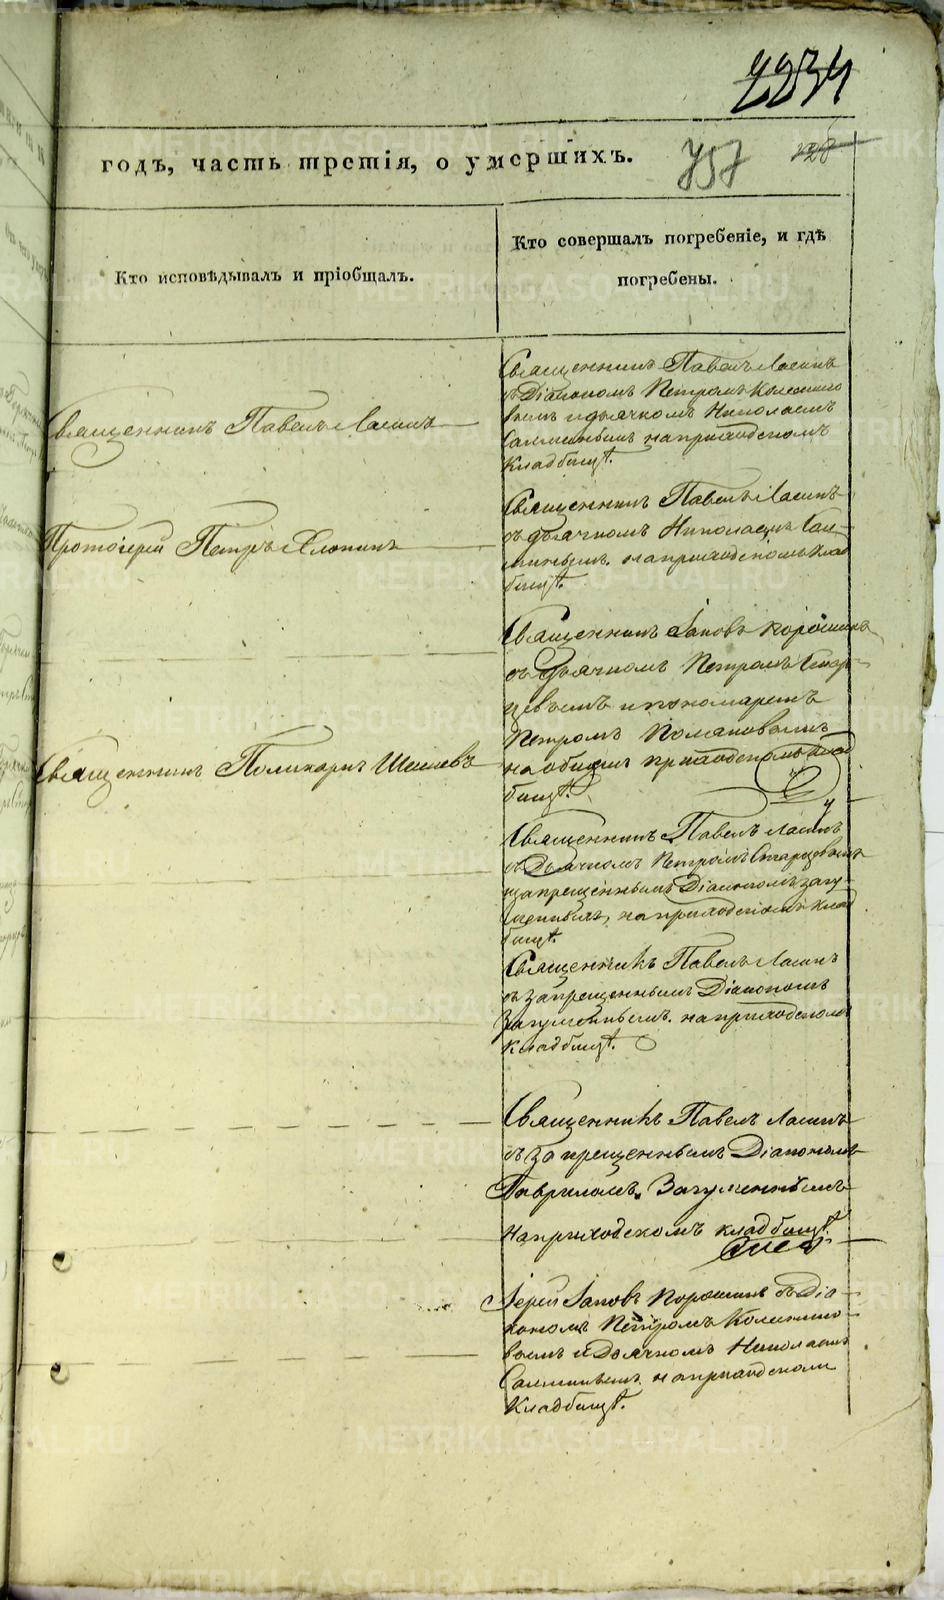 2234
годъ, часть третія, о умершихъ.
757
228
Кто исповѣдывалъ и пріобщалъ.
Кто совершалъ погребеніе, и гдѣ
погребены.
Священникъ Павелъ
Священникъ Павелъ
съ Діакономъ Петромъ
и дьячкомъ Николаемъ
на приходскомъ
кладбищѣ.
Протоіерей Петръ
Священникъ Павелъ
съ дьячкомъ Николаемъ
на приходскомъ клад
бищѣ.
Священникъ Поликарпъ
Священникъ Іаковъ Порошинъ
съ дьячкомъ Петромъ Стар-
цевымъ и пономаремъ
Петромъ
на общемъ приходскомъ клад
бищѣ.
Священникъ Павелъ
съ Дьячкомъ Петромъ Старцовымъ
запрещеннымъ Діакономъ Загу-
меннымъ, на приходскомъ клад
бищѣ.
Священникъ Павелъ
съ запрещеннымъ Діакономъ
Загуменнымъ. на приходскомъ
кладбищѣ.
Священникъ Павелъ
съ запрещеннымъ Діакономъ
Гавриломъ Загуменнымъ
на приходскомъ кладбищѣ.
Іерей Іаковъ Порошинъ съ Діа-
кономъ Петромъ
и Дьячкомъ Николаемъ
на приходскомъ
кладбищѣ.
METRIKI.GASO-URAL.RU